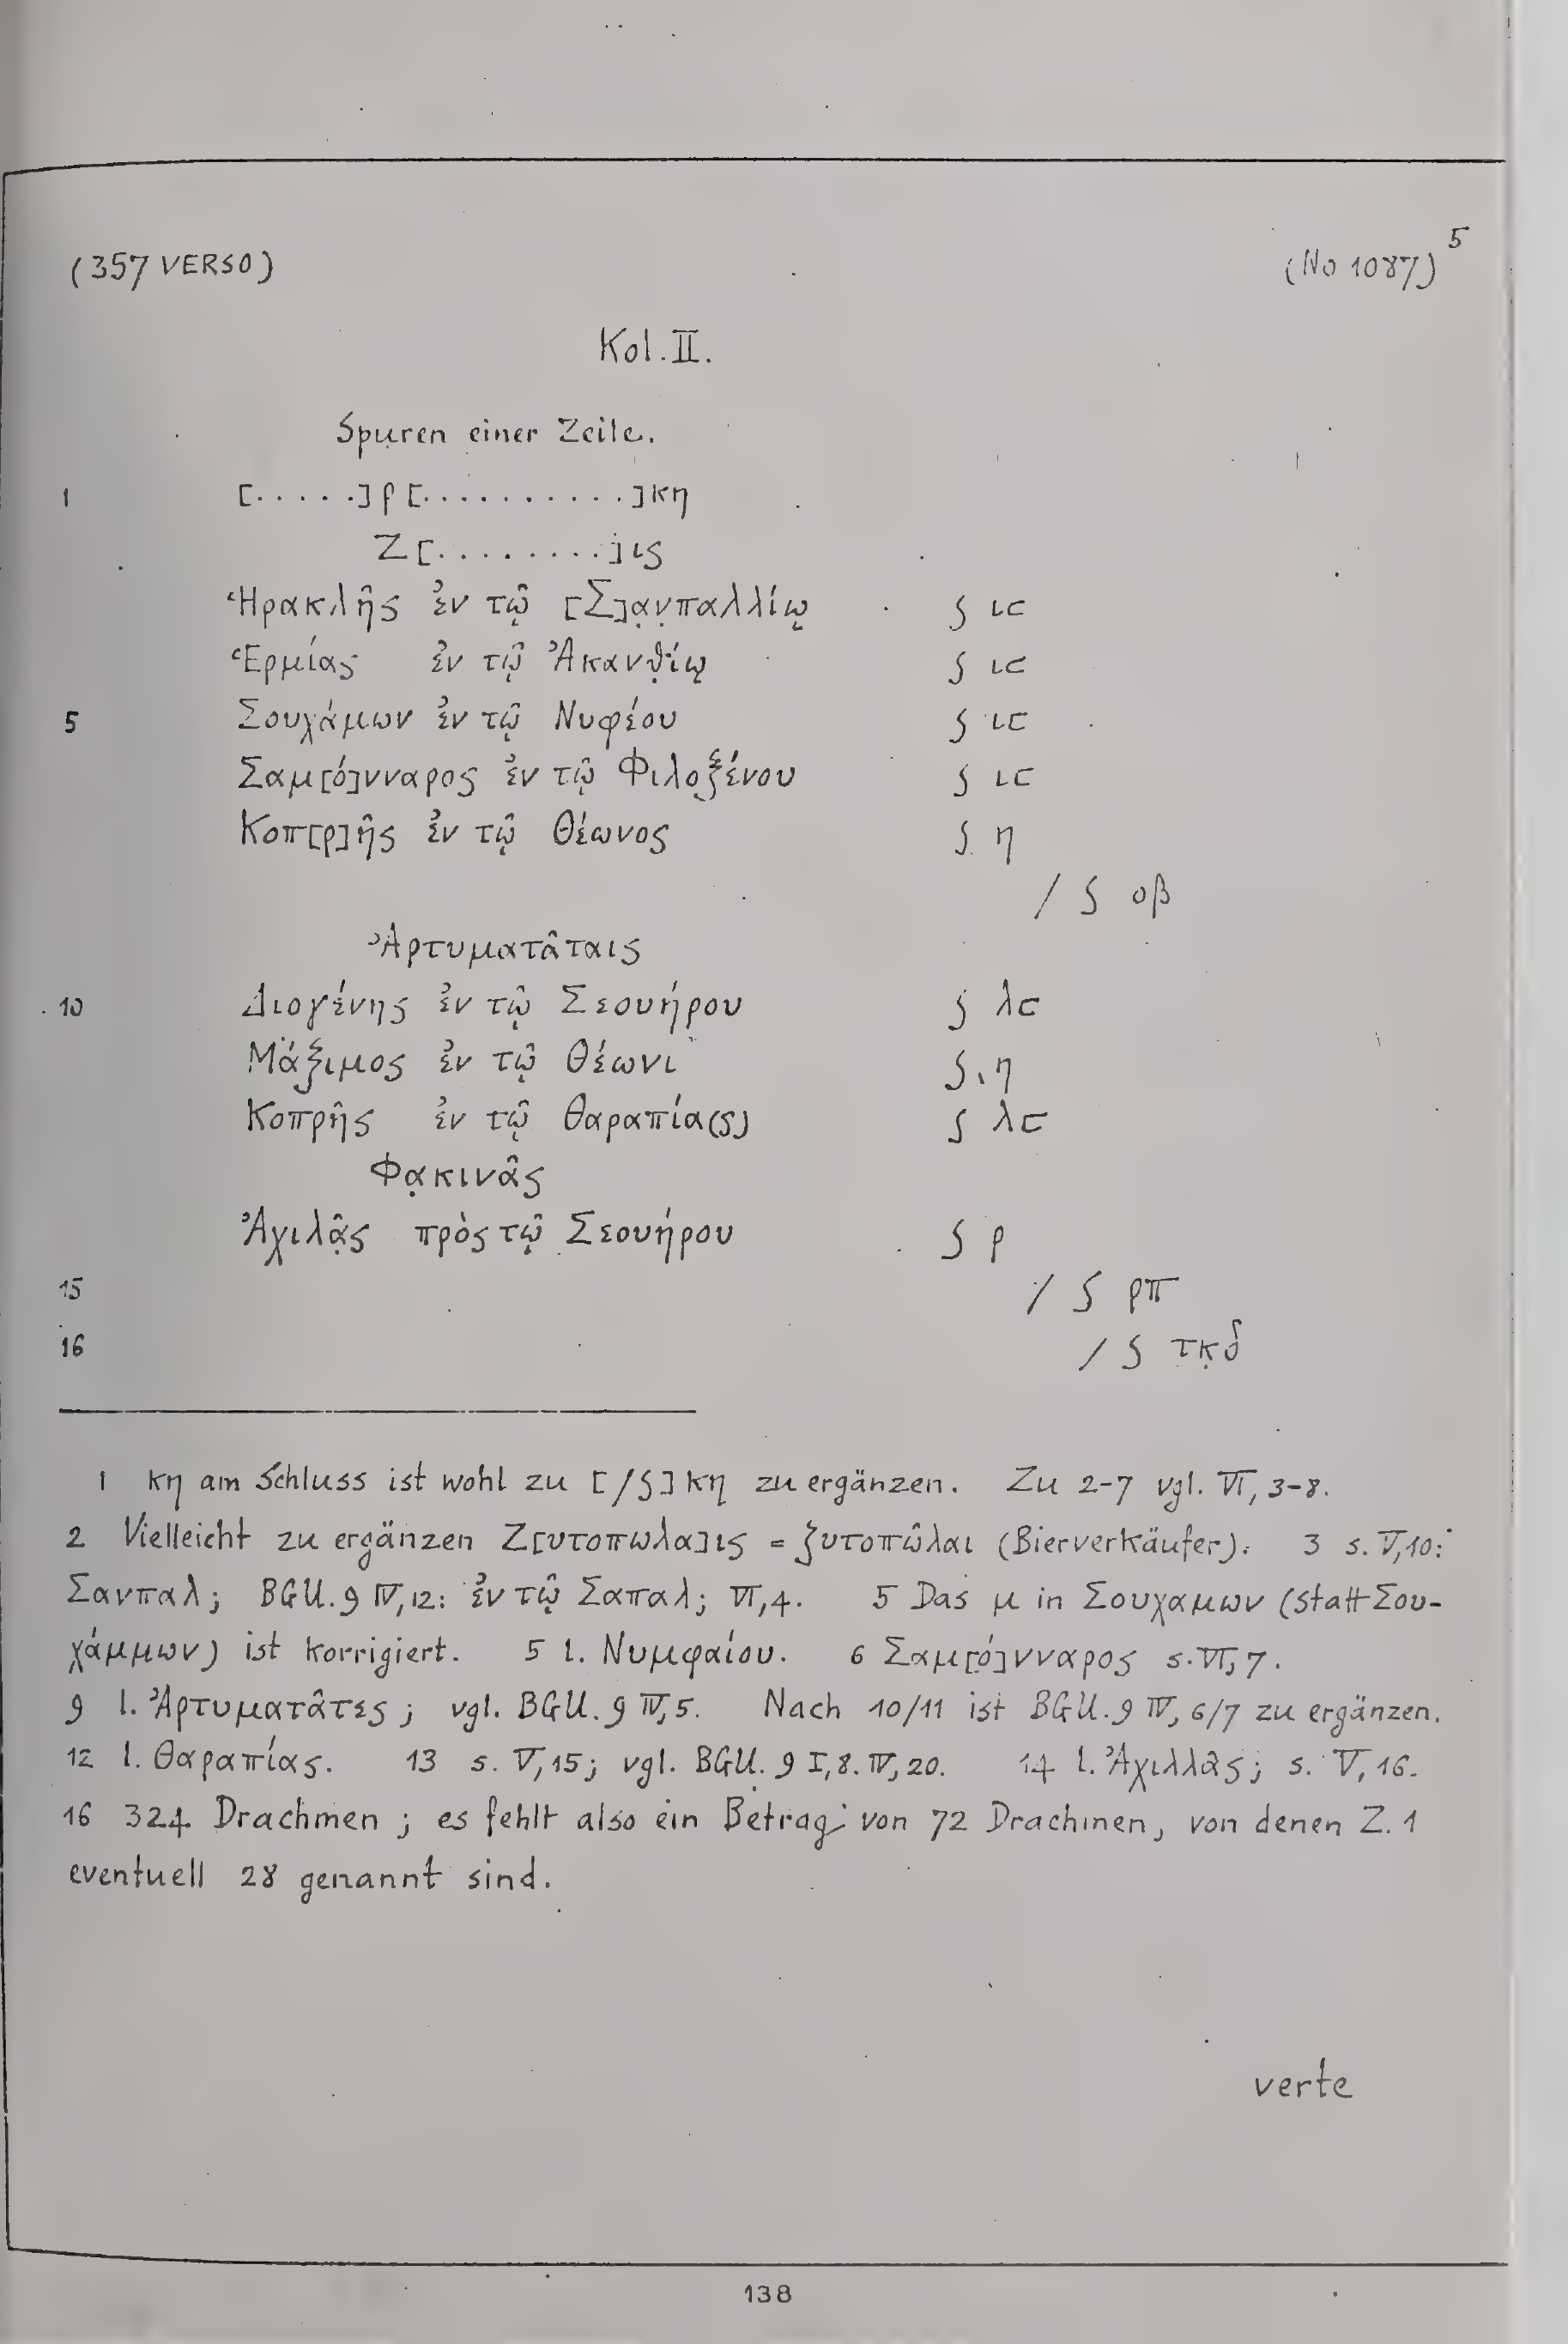 5
(357 VERSO) (No 1087)
Kol. II.
Spuren einer Zeile.
1 [.....]ρ[..........]κη
Ζ[........]ις
Ἡρακλῆς ἐν τῷ [Σ]α̣ν̣παλλίῳ ʃ ιϲ
Ἑρμίας ἐν τῷ Ἀκανθ̣ίῳ ʃ ιϲ
5 Σουχάμων ἐν τῷ Νυφέου ʃ ιϲ
Σαμ[ό]νναρος ἐν τῷ Φιλοξ̣ένου ʃ ιϲ
Κοπ[ρ]ῆς ἐν τῷ Θέωνος ʃ η
/ ʃ οβ
Ἀρτυματᾶταις
10 Διογένης ἐν τῷ Σεουήρου ʃ λϲ
Μάξιμος ἐν τῷ Θέωνι ʃ η
Κοπρῆς ἐν τῷ Θαραπία(ς) ʃ λϲ
Φα̣κινᾶς
Ἀχιλᾶ̣ς πρὸς τῷ Σεουήρου ʃ ρ
15 / ʃ ρπ
16 / ʃ τκ̣δ
1 κη am Schluss ist wohl zu [/ʃ]κη zu ergänzen. Zu 2-7 vgl. VI, 3-8.
2 Vielleicht zu ergänzen Ζ[υτοπωλα]ις = ζυτοπῶλαι (Bierverkäufer). 3 s. V,10:
Σανπαλ; BGU. 9 IV, 12: ἐν τῷ Σαπαλ; VI, 4. 5 Das μ in Σουχαμων (statt Σου-
χάμμων) ist korrigiert. 5 l. Νυμφαίου. 6 Σαμ[ό]νναρος s. VI, 7.
9 l. Ἀρτυματᾶτες; vgl. BGU. 9 IV, 5. Nach 10/11 ist BGU. 9 IV, 6/7 zu ergänzen.
12 l. Θαραπίας. 13 s. V, 15; vgl. BGU. 9 I, 8. IV, 20. 14 l. Ἀχιλλᾶς; s. V, 16.
16 324 Drachmen; es fehlt also ein Betrag von 72 Drachmen, von denen Z. 1
eventuell 28 genannt sind.
verte
138